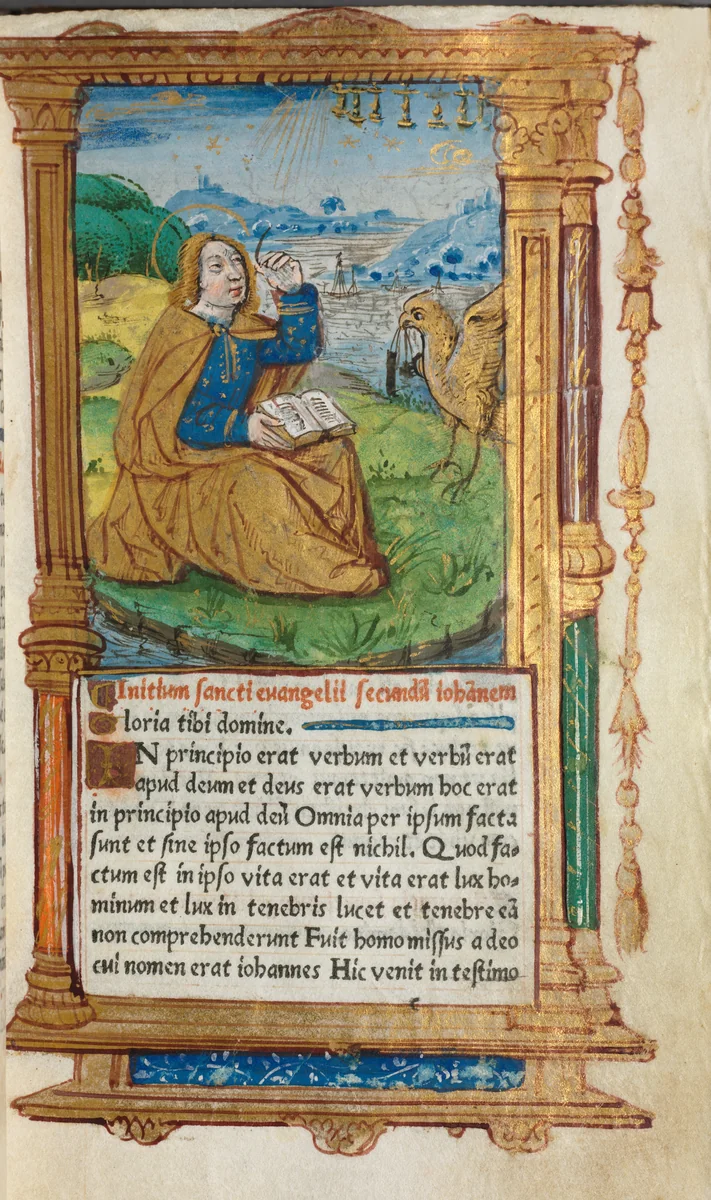 Initium sancti evangelii secundū iohānem
Gloria tibi domine.
IN principio erat verbum et verbū erat
apud deum et deus erat verbum hoc erat
in principio apud deū Omnia per ipsum facta
sunt et sine ipso factum est nichil. Quod fa-
ctum est in ipso vita erat et vita erat lux ho-
minum et lux in tenebris lucet et tenebre eā
non comprehenderunt Fuit homo missus a deo
cui nomen erat iohannes Hic venit in testimo